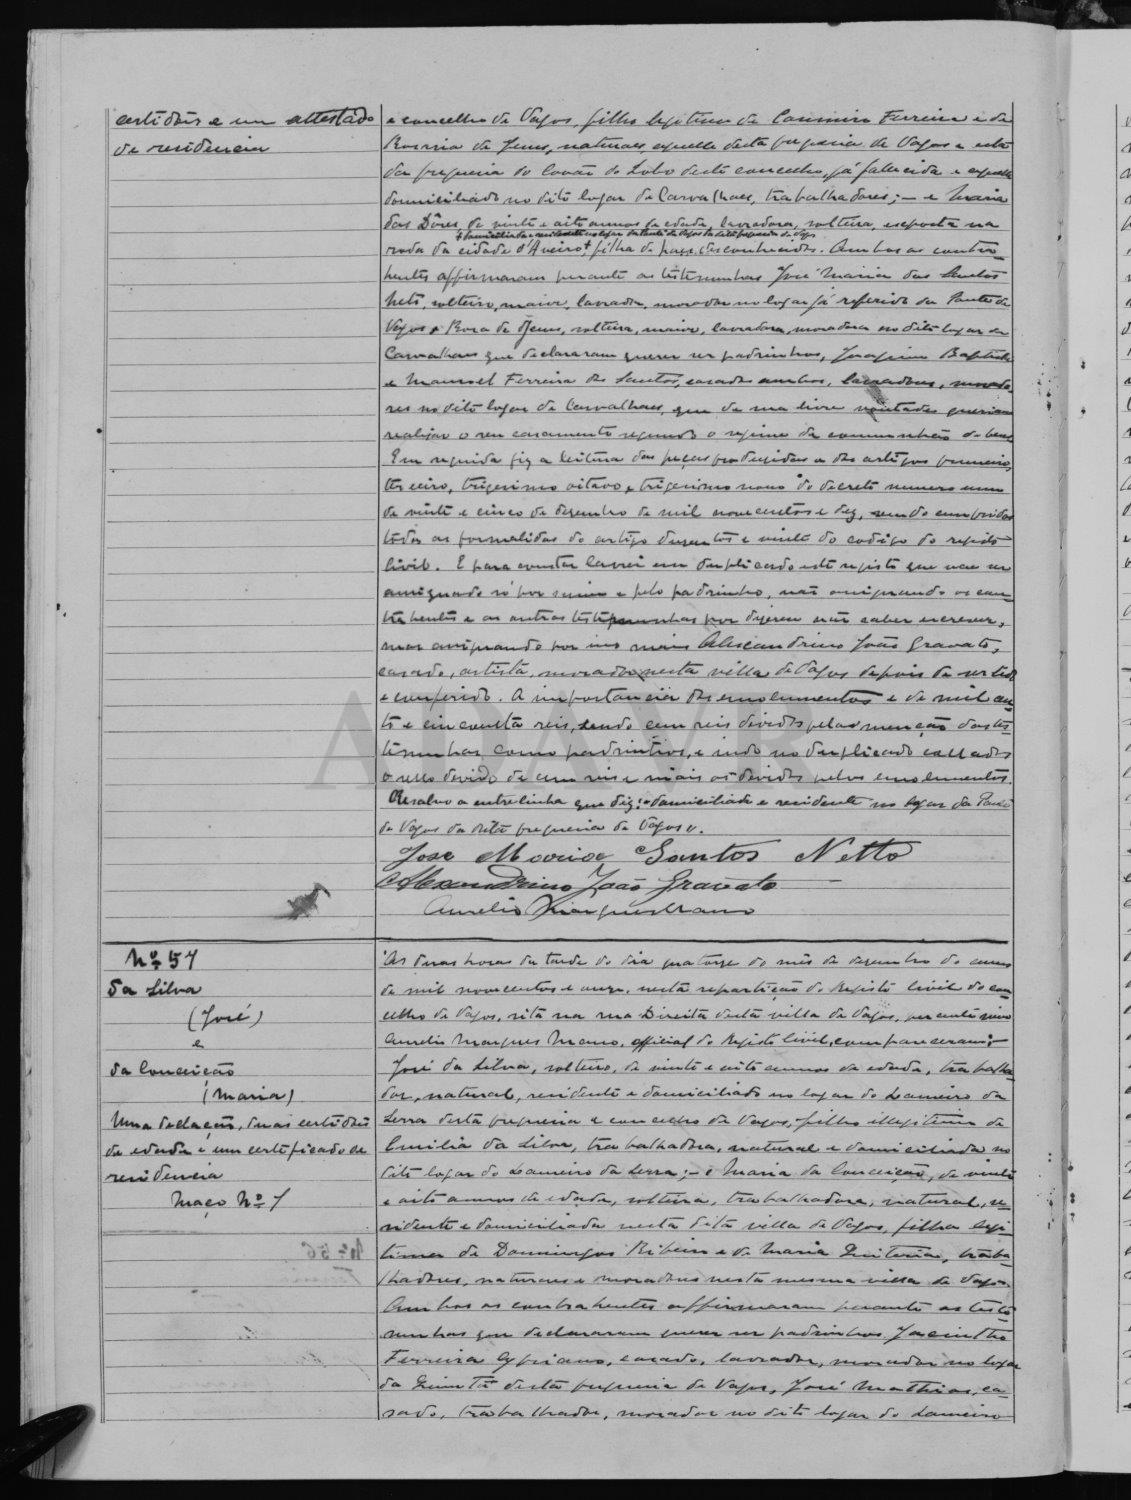 certidões e um attestado
de residencia
e concelho de Vagos, filho legitimo de Casimiro Ferreira e de
Rosaria de Jesus, naturaes, aquelle desta freguesia de Vagos e esta
da freguesia do Covão do Lobo deste concelho, já fallecida e aquelle
domiciliado no dito logar de Carvalhaes, trabalhadores; – e Maria
das Dôres, de vinte e oito annos de edade, lavradora, solteira, exposta na
+ domiciliada e residente no logar da Ponte de Vagos da dita freguesia de Vagos
roda da cidade d'Aveiro, + filha de paes desconhecidos. Ambos os contra-
hentes affirmaram perante as testemunhas José Maria dos Santos
Neto, solteiro, maior, lavrador, morador no logar já referido da Ponte de
Vagos e Rosa de Jesus, solteira, maior, lavradora, moradora no dito logar de
Carvalhaes que declararam querer ser padrinhos, Joaquim Baptista
e Manoel Ferreira dos Santos, casados ambos, lavradores, morado-
res no dito logar de Carvalhaes, que de sua livre vontade queriam
realisar o seu casamento segundo o regimen da communhão de bens
Em seguida fiz a leitura das peças produzidas e dos artigos primeiro,
terceiro, trigesimo oitavo e trigesimo nono do decreto numero um
de vinte e cinco de dezembro de mil novecentos e dez, sendo cumpridas
todas as formalidades do artigo duzentos e vinte do codigo do registo
civil. E para constar lavrei em duplicado este registo que vae ser
assignado só por mim e pelo padrinho, não assignando os con-
trahentes e as outras testemunhas por dizerem não saber escrever,
mas assignando por elles Alexandrino João Gravato,
casado, artista, morador nesta villa de Vagos depois de ser lido
e conferido. A importancia dos emolumentos é de mil cen-
to e cincoenta reis, sendo cem reis devidos pela menção das tes-
temunhas como padrinhos, e indo no duplicado collados
o sello devido de cem reis e mais os devidos pelos emolumentos.
Resalvo a entrelinha que diz: "domiciliada e residente no logar da Ponte
de Vagos da dita freguesia de Vagos".
José Maria Santos Netto
Alexandrino João Gravato
Aurelio Marques Mano
Nº 57
Da Silva
(José)
e
da Conceição
(Maria)
Uma declação, duas certidões
de edade e um certificado de
residencia
Maço Nº 7
Nº 56
Ás duas horas da tarde do dia quatorze do mês de dezembro do anno
de mil novecentos e onze, nesta repartição do Registo Civil do con-
celho de Vagos, sita na rua Direita desta villa de Vagos, perante mim
Aurelio Marques Mano, official do Registo Civil, compareceram: –
José da Silva, solteiro, de vinte e oito annos de edade, trabalha-
dor, natural, residente e domiciliado no logar do Lameiro da
Serra desta freguesia e concelho de Vagos, filho illegitimo de
Emilia da Silva, trabalhadora, natural e domiciliada no
dito logar do Lameiro da Serra; – e Maria da Conceição, de vinte
e oito annos de edade, solteira, trabalhadora, natural, re-
sidente e domiciliada nesta dita villa de Vagos, filha legi-
tima de Domingos Ribeiro e de Maria Quiteria, traba-
lhadores, naturaes e moradores nesta mesma villa de Vagos.
Ambos os contrahentes affirmaram perante as teste-
munhas que declararam querer ser padrinhos Jacintho
Ferreira Cypriano, casado, lavrador, morador no logar
da Quintã desta freguesia de Vagos, José Mathias, ca-
sado, trabalhador, morador no dito logar do Lameiro